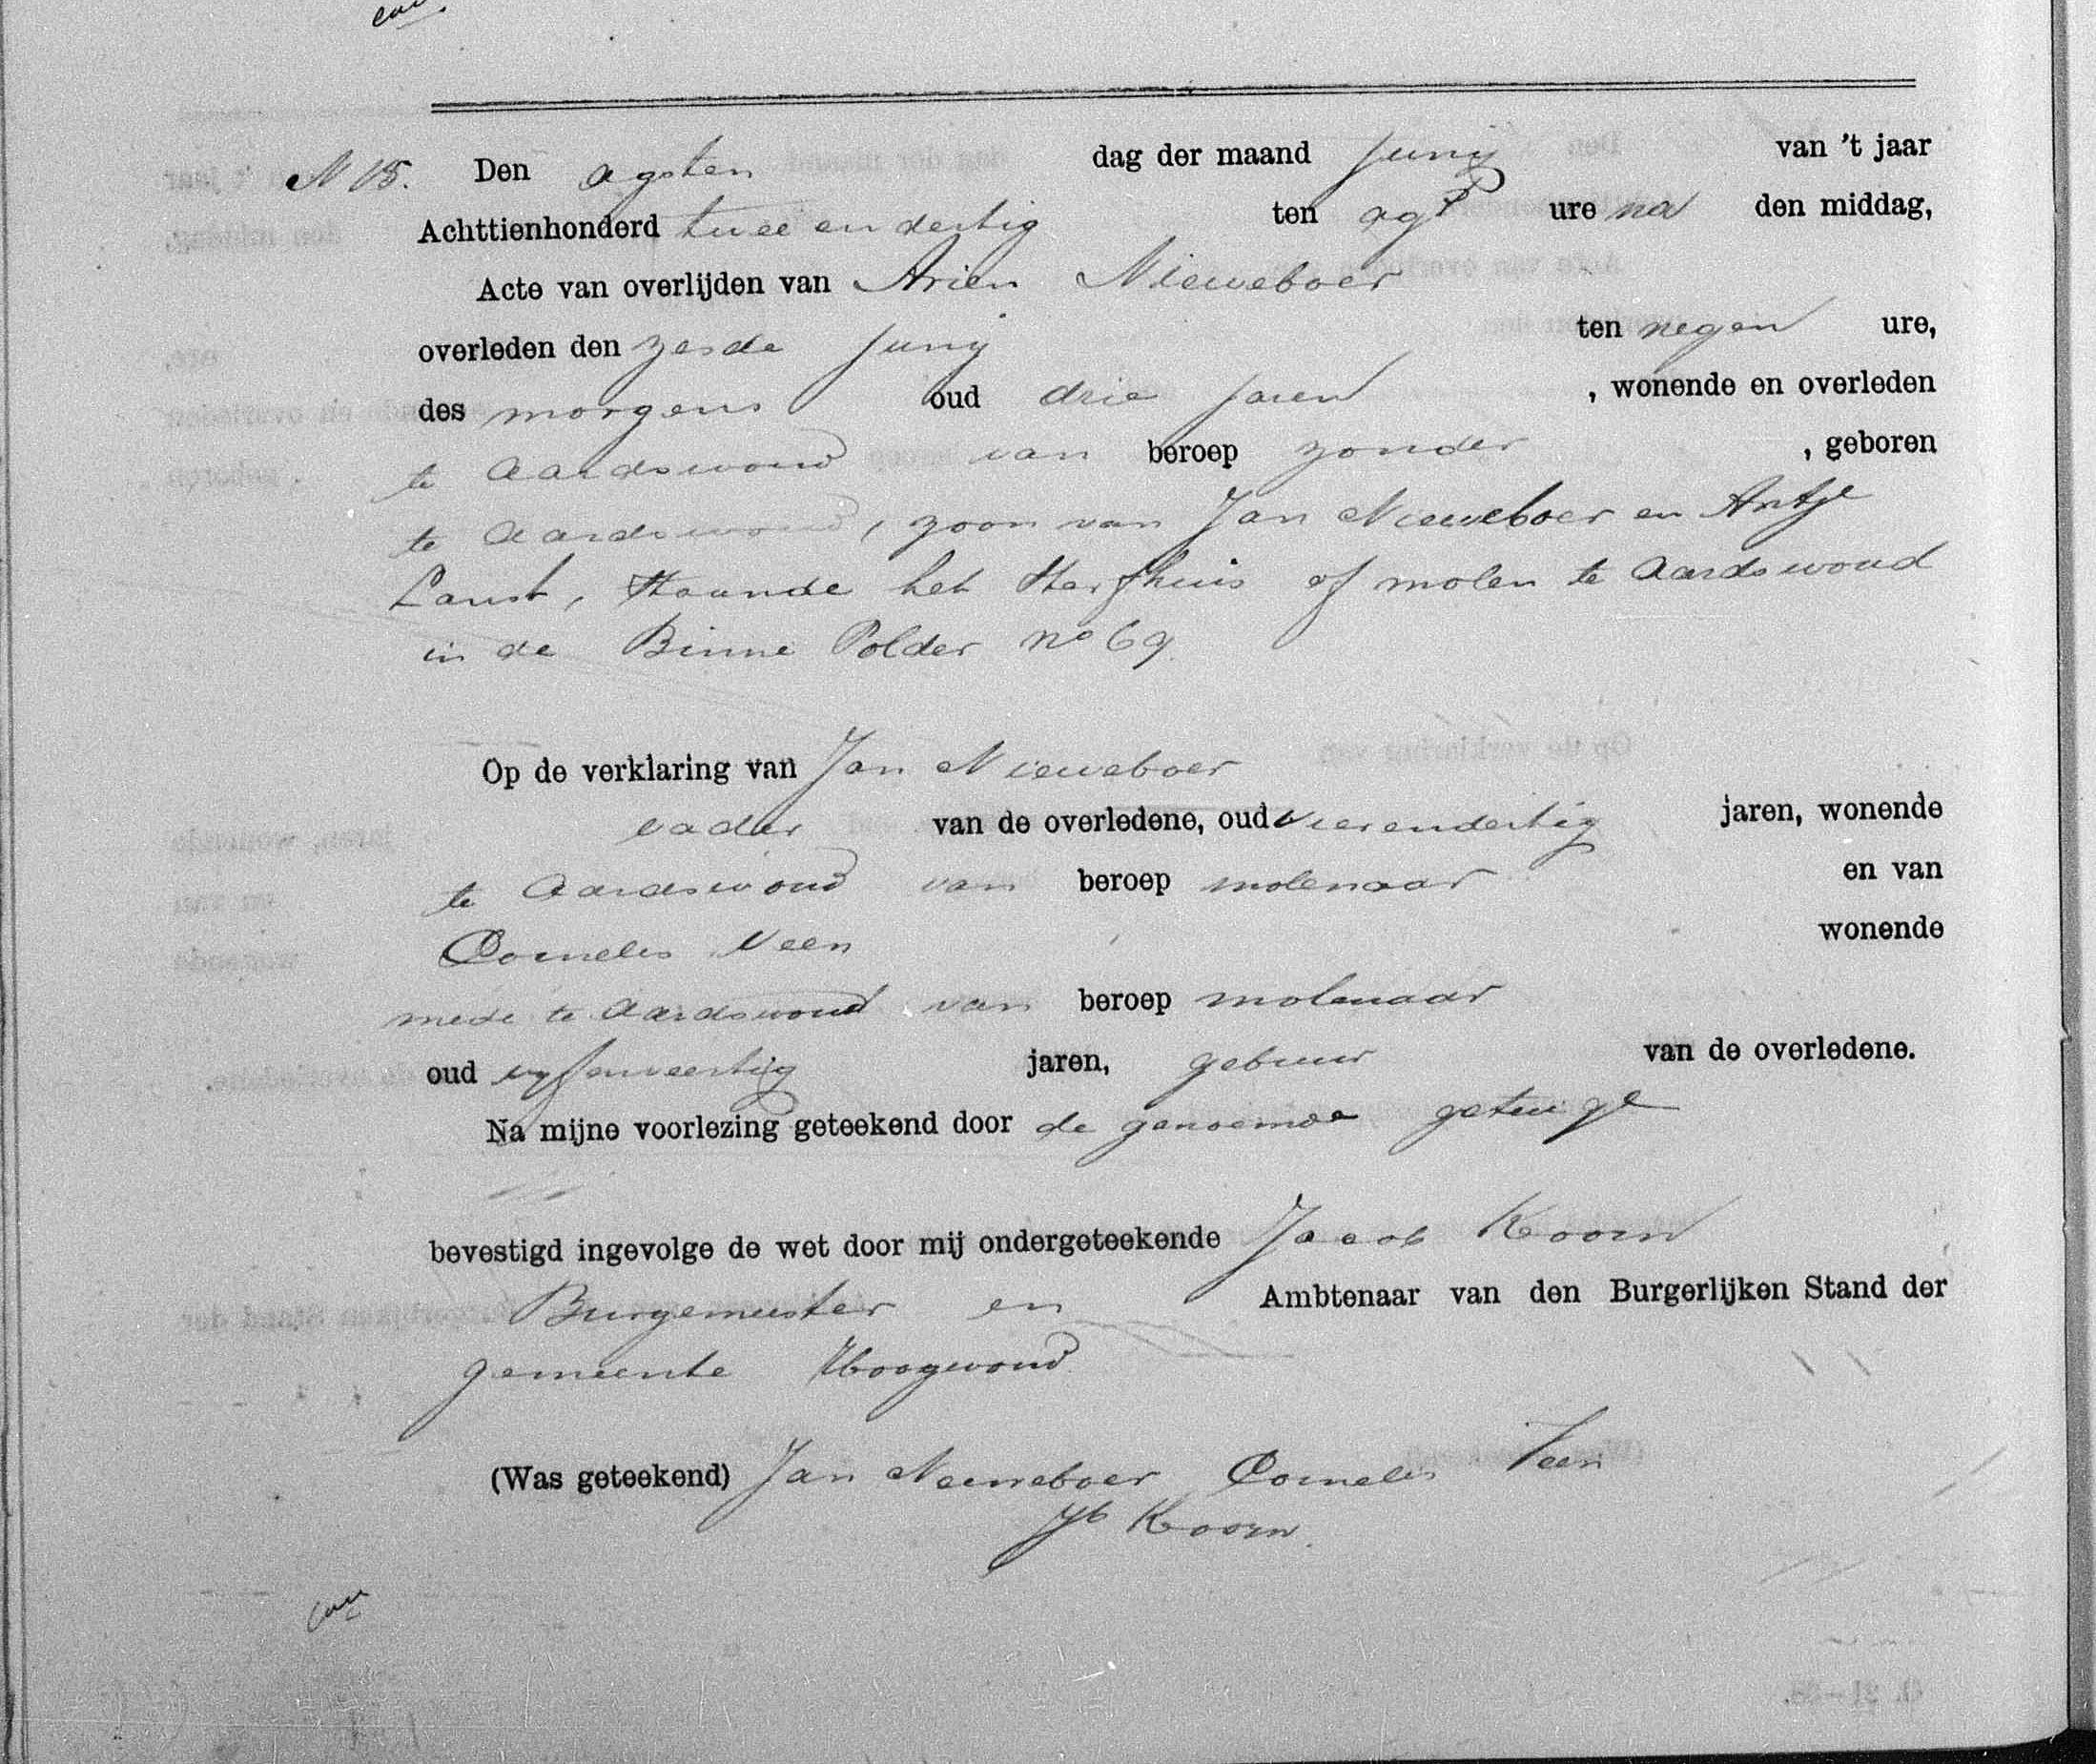 N 15. Den agsten dag der maand Junij van 't jaar
Achttienhonderd twee en dertig ten agt ure na den middag,
Acte van overlijden van Arien Nieuweboer
overleden den zesde Junij ten negen ure,
des morgens oud drie jaren , wonende en overleden
te Aardswoud van beroep zonder , geboren
te Aardswoud, zoon van Jan Nieuweboer en Antje
Lanst, staande het sterfhuis of molen te Aardswoud
in de Binne Polder no 69.
Op de verklaring van Jan Nieuweboer
vader van de overledene, oud vierendertig jaren, wonende
te Aardswoud van beroep molenaar en van
Cornelis Veen wonende
mede te Aardswoud van beroep molenaar
oud vyfenveertig jaren, gebuur van de overledene.
Na mijne voorlezing geteekend door de genoemde getuige
bevestigd ingevolge de wet door mij ondergeteekende Jacob Koorn
Burgemeester en Ambtenaar van den Burgerlijken Stand der
gemeente Hoogwoud
(Was geteekend) Jan Nieuweboer Cornelis Veen
Jb Koorn.